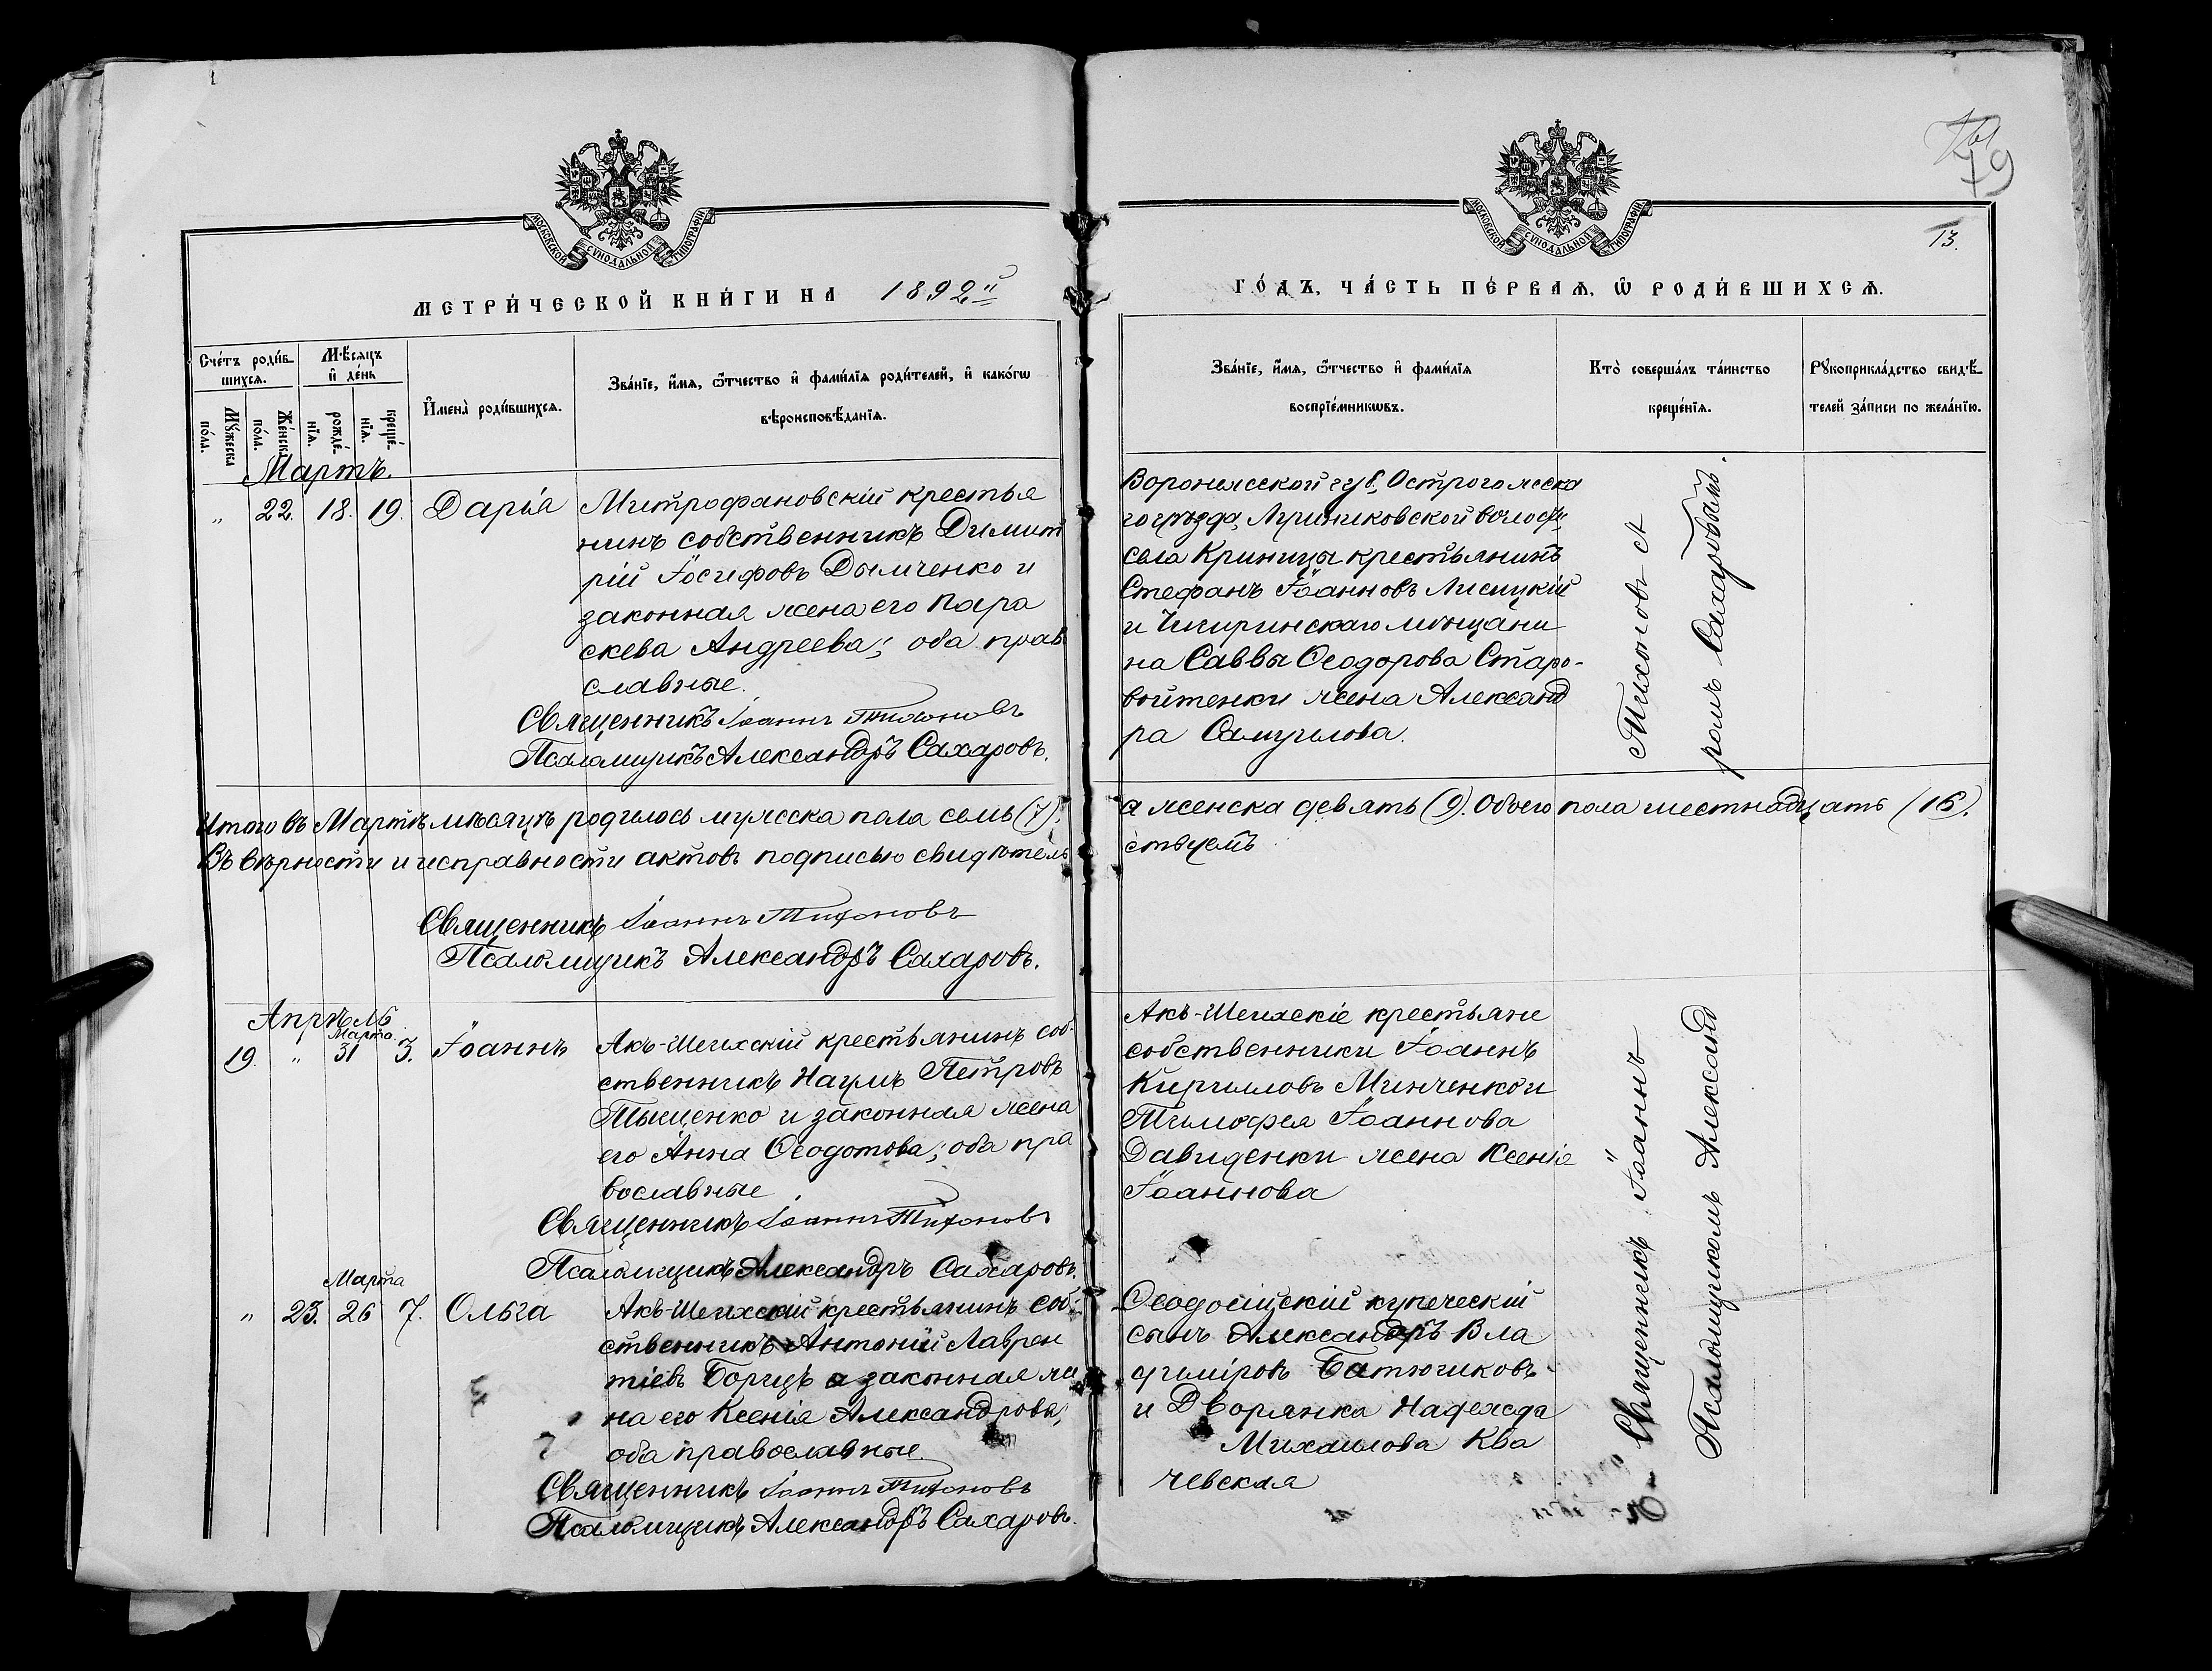 79
13.
МОСКОВСКОЙ СѴНОДАЛЬНОЙ ТИПОГРАФІИ
МОСКОВСКОЙ СѴНОДАЛЬНОЙ ТИПОГРАФІИ
МЕТРИ́ЧЕСКОЙ КНИ́ГИ НА 1892й
ГО́ДЪ, ЧА́СТЬ ПЕ́РВАѦ, Ѡ҆ РОДИ́ВШИХСѦ.
Сче́тъ роди́в-
шихсѧ.
Мѣ́сѧцъ
и҆ де́нь
Мꙋ́жеска
по́ла.
Же́нска
по́ла.
рожде́-
нїѧ.
креще́-
нїѧ.
И҆мена̀ роди́вшихсѧ.
Зва́нїе, и҆́мѧ, ѻ҆́тчество и҆ фами́лїѧ роди́телей, и҆ како́гѡ
вѣроисповѣ́данїѧ.
Зва́нїе, и҆́мѧ, ѻ҆́тчество и҆ фами́лїѧ
воспрїе́мникѡвъ.
Кто̀ соверша́лъ та́инство
креще́нїѧ.
Рꙋкоприкла́дство свидѣ́-
телей за́писи по жела́нїю.
Мартъ.
" 22. 18. 19. Дарія
Митрофановскій крестья
нинъ собственникъ Димит
рій Іосифовъ Дымченко и
законная жена его Пара
скева Андреева; оба прав
славные.
Священникъ Іоаннъ Тихоновъ
Псаломщикъ Александръ Сахаровъ.
Воронежской губ., Острогожска
го уѣзда, волости,
села Криницы крестьянинъ
Стефанъ Іоанновъ Лисицкій
и Чигиринскаго мѣщани
на Саввы Ѳеодорова Старо-
войтенки жена Александ
ра Самуилова.
Тихоновъ съ
ромъ Сахаровымъ.
Итого въ Мартѣ мѣсяцѣ родилось мужеска пола семь (7).
а женска девять (9). Обоего пола шестнадцать (16).
Въ вѣрности и исправности актовъ подписью свидѣтель
ствуемъ
Священникъ Іоаннъ Тихоновъ
Псаломщикъ Александръ Сахаровъ.
Апрѣль
Марта
19. " 31 3. Іоаннъ
Акъ-Шеихскій крестьянинъ соб-
ственникъ Наумъ Петровъ
Тыщенко и законная жена
его Анна Ѳеодотова; оба пра
вославные
Священникъ Іоаннъ Тихоновъ
Псаломщикъ Александръ Сахаровъ.
Акъ-Шеихскіе крестьяне
собственники Іоаннъ
Кирилловъ Минченко и
Тимофея Іоаннова
Давиденки жена Ксенія
Іоаннова
Марта
" 23. 26 7. Ольга
Акъ-Шеихскій крестьянинъ соб-
ственникъ Антоній Лаврен
тіевъ Борицъ и законная же
на его Ксенія Александрова,
оба православные.
Священникъ Іоаннъ Тихоновъ
Псаломщикъ Александръ Сахаровъ.
Ѳеодосійскій купеческій
сынъ Александръ Вла
диміровъ Батюшковъ
и Дворянка Надежда
Михаилова Ква
чевская
Священникъ Іоаннъ
Псаломщикомъ Александ